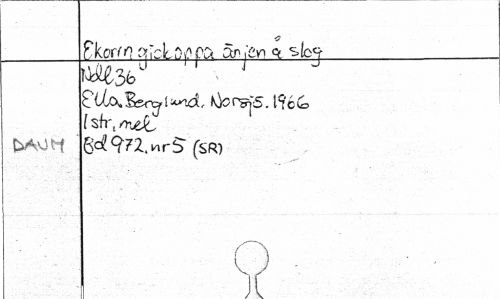 Ekorrn gick oppa änjen å slog
Ndl 36
Ella Berglund, Norsjö. 1966
1 str, mel
DAUM Bd 972, nr 5 (SR)